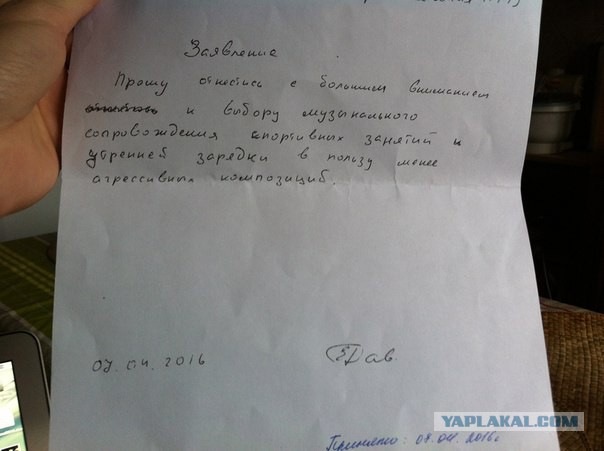 Заявление
Прошу отнестись с большим вниманием
к выбору музыкального
сопровождения спортивных занятий и
утренней зарядки в пользу менее
агрессивных композиций.
07.04.2016
Принято: 07.04.2016г
YAPLAKAL.COM